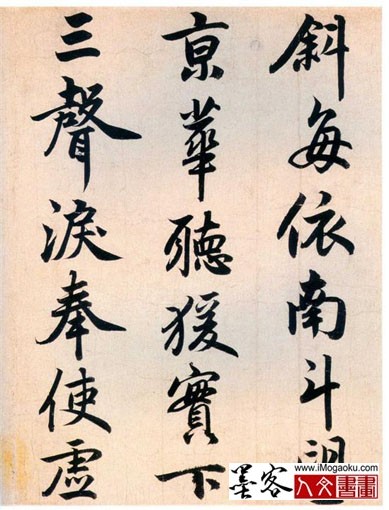 斜每依南斗望
京華聽猨實下
三聲淚奉使虛
www.iMogaoku.com
墨客
人文書畫